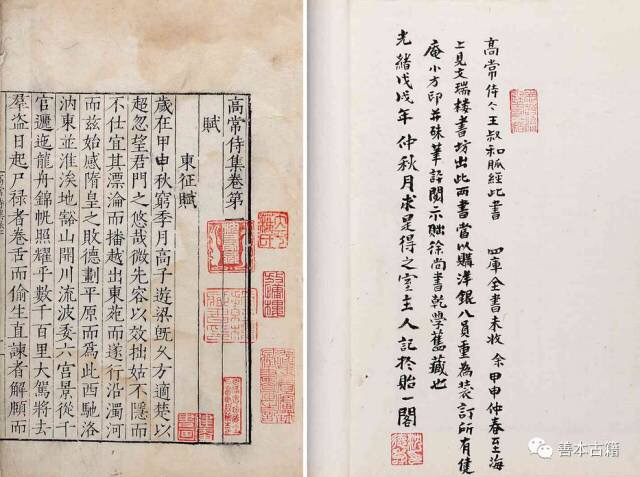 高常侍集卷第一
賦
東征賦
歲在甲申秋窮季月高子遊梁既久方適楚以
超忽望君門之悠哉微先容以效拙姑不隱而
不仕宜其漂淪而播越出東苑而遂行沿濁河
而茲始感隋皇之敗德劃平原而為此西馳洛
汭東並淮涘地豁山開川流波委六宮景從千
官邐迤龍舟錦帆照耀乎數千百里大駕將去
羣盜日起尸祿者卷舌而偷生直諫者解頤而
高常侍王叔和脈經此書 四庫全書未收 余甲申仲春至海
上見文瑞楼書坊出此两書當以購洋銀八員重為裝訂所有健
庵小方印并硃筆詳閱徐尚書乾學舊藏也
光緒戊戌年仲秋月求是得之室主人記於貽一閣
善本古籍